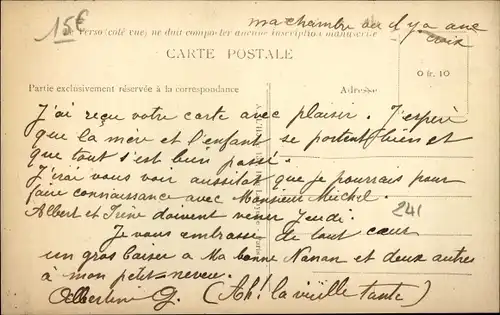 15€
ma chambre où il y a une
croix
Verso (côté vue) ne doit comporter aucune inscription manuscrite
CARTE POSTALE
0 fr. 10
Partie exclusivement réservée à la correspondance
Adresse
J'ai reçu votre carte avec plaisir. J'espère
que la mère et l'enfant se portent bien et
que tout s'est bien passé.
J'irai vous voir aussitôt que je pourrais pour
faire connaissance avec Monsieur Michel.
Albert et Irène doivent venir Jeudi.
241
Je vous embrasse de tout cœur
un gros baiser à Ma bonne Nanan et deux autres
à mon petit-neveu.
Albertine G. (Ah! la vieille tante)